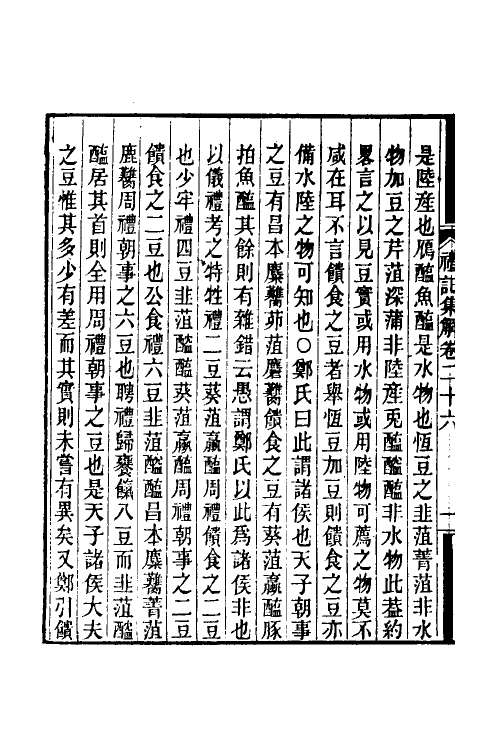 是陸産也鴈醢魚醢是水物也恆豆之韭菹菁菹非水
物加豆之芹菹深蒲非陸産兎醢醓醢非水物此葢約
畧言之以見豆實或用水物或用陸物可薦之物莫不
咸在耳不言饋食之豆者舉恆豆加豆則饋食之豆亦
備水陸之物可知也○鄭氏曰此謂諸侯也天子朝事
之豆有昌本麋臡茆菹麏臡饋食之豆有葵菹蠃醢豚
拍魚醢其餘則有雜錯云愚謂鄭氏以此爲諸侯非也
以儀禮考之特牲禮二豆葵菹蠃醢周禮饋食之二豆
也少牢禮四豆韭菹醓醢葵菹蠃醢周禮朝事之二豆
饋食之二豆也公食禮六豆韭菹醓醢昌本麋臡菁菹
鹿臡周禮朝事之六豆也聘禮歸饔餼八豆而韭菹醓
醢居其首則全用周禮朝事之豆也是天子諸侯大夫
之豆惟其多少有差而其實則未嘗有異矣又鄭引饋
禮記集解卷二十六